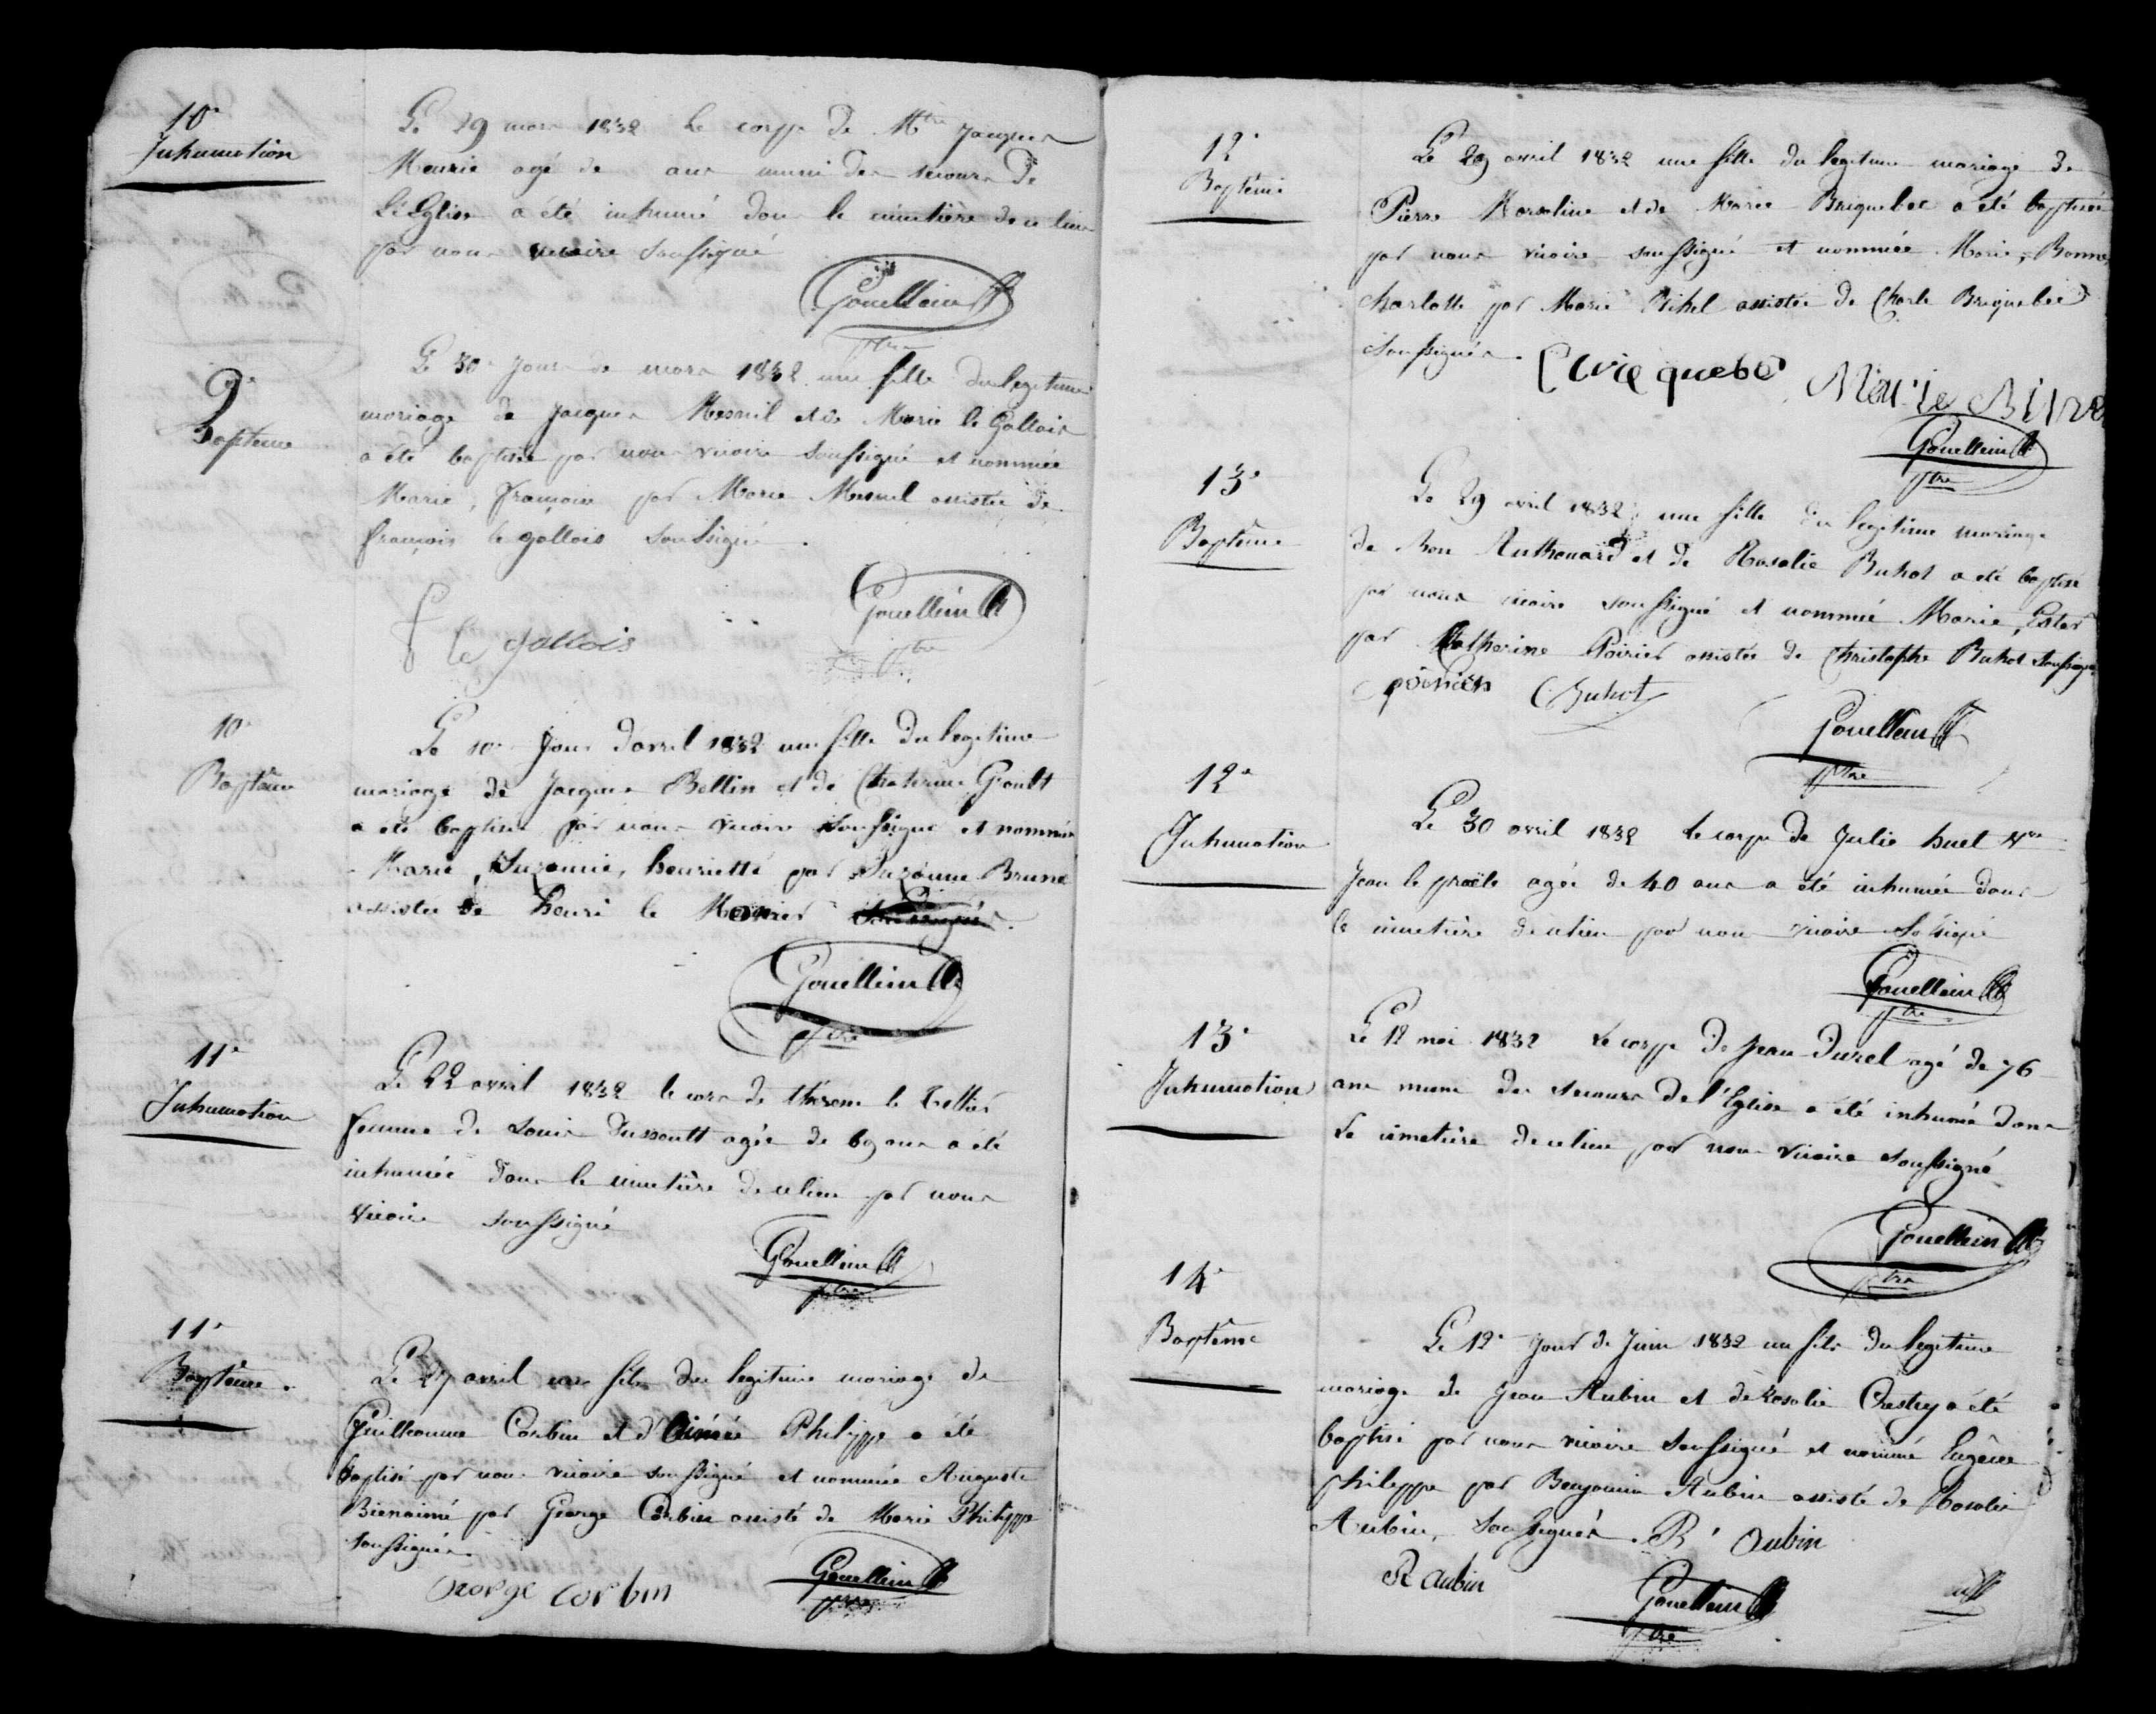 10e
Inhumation
Le 29 mars 1832 le corps de Mtre Jacques
Meurie agé de ans muni des secours de
L'Eglise a été inhumé dans le cimetière de ce lieu
par nous vicaire soussigné
Gouellain
ptre
9e
Bapteme
Le 30e jour de mars 1832 une fille du legitime
mariage de Jacques Mesnil et de Marie le Gallois
a été baptisée par nous vicaire soussigné et nommée
Marie, françoise par Marie Mesnil assistée de
françois le gallois soussigné.
f le gallois
Gouellain
ptre
10e
Baptême
Le 10e jour d'avril 1832 une fille du legitime
mariage de Jacques Bellin et de Chaterine Goult
a été baptisée par nous vicaire soussigné et nommée
Marie, Suzanne, henriette par Suzanne Brune
assistée de henri le Monier
Gouellain
ptre
11e
Inhumation
Le 22 avril 1832 le cors de thérese le Tellier
femme de Louis Dussoult agée de 69 ans a été
inhumée dans le cimetière de ce lieu par nous
vicaire soussigné
Gouellain
ptre
11e
Baptême.
Le 27 avril un fils du legitime mariage de
Guilleaume Corbin et d'Aimée Philippe a été
baptisé par nous vicaire soussigné et nommée Auguste
Bienaimé par George Corbin assisté de Marie Philippe
soussignés.
George corbin
Gouellain
ptre
12e
Baptême
Le 29 avril 1832 une fille du legitime mariage de
Pierre Marsoline et de Marie Briquebec a été baptisée
par nous vicaire soussigné et nommée Marie, Bonne,
charlotte par Marie Bihel assistée de Charle Briquebec
soussignés.
Gouellain
ptre
13e
Baptême
Le 29 avril 1832 une fille du legitime mariage
de bon Authouard et de Rosalie Buhot a été baptisé
par nous vicaire soussigné et nommée Marie, Ester
par Catherine Poirier assistée de Christophe Buhot soussignés
poirier C Buhot
Gouellain
ptre
12e
Inhumation
Le 30 avril 1832 le corps de Julie huel Vve
Jean le proële agée de 40 ans a été inhumée dans
le cimetière de ce lieu par nous vicaire
Gouellain
ptre
13e
Inhumation
Le 12 mai 1832 Le corps de Jean Durel agé de 76
ans muni des secours de l'Eglise a été inhumé dans
Le cimetière de ce lieu par nous vicaire soussigné
Gouellain
ptre
14e
Baptême
Le 12e jour de Juin 1832 un fils du legitime
mariage de Jean Aubin et de Rosalie a été
baptisé par nous vicaire soussigné et nommé Eugène
philippe par Benjamin Aubin assisté de Rosalie
Aubin, soussignés. B Aubin
R aubin
Gouellain
ptre